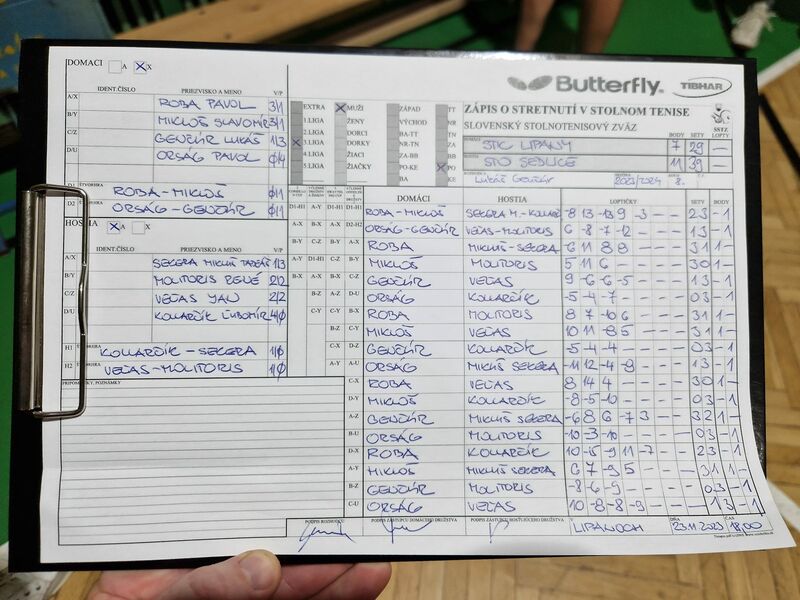 DOMACI A X
IDENT.ČÍSLO PRIEZVISKO A MENO V/P
A/X ROBA PAVOL 3/1
B/Y MIKLOŠ SLAVOMÍR 3/1
C/Z GENČÚR LUKÁŠ 1/3
D/U ORSÁG PAVOL 0/4
D1 ŠTVORHRA ROBA-MIKLOŠ 0/1
D2 ŠTVORHRA ORSÁG-GENČÚR 0/1
HOSTIA A X
IDENT.ČÍSLO PRIEZVISKO A MENO V/P
A/X SEKERA MIKUŠ TADEÁŠ 1/3
B/Y MOLITORIS RENÉ 2/2
C/Z VEĽAS JÁN 2/2
D/U KOLLARČÍK ĽUBOMÍR 4/0
H1 ŠTVORHRA KOLLARČÍK-SEKERA 1/0
H2 ŠTVORHRA VEĽAS-MOLITORIS 1/0
PRIPOMIENKY, POZNÁMKY
EXTRA MUŽI ZÁPAD TT
1.LIGA ŽENY VÝCHOD NR
2.LIGA DORCI BA-TT TN
3.LIGA DORKY NR-TN ZA
4.LIGA ŽIACI ZA-BB BB
5.LIGA ŽIAČKY PO-KE PO
BA KE
Butterfly TIBHAR
ZÁPIS O STRETNUTÍ V STOLNOM TENISE
SLOVENSKÝ STOLNOTENISOVÝ ZVÄZ SSTZ
BODY SETY LOPTY
STK LIPANY 7 29 -
STO SEDLICE 11 39 -
Lukáš Genčúr 2023/2024 8.
DOMÁCI HOSTIA LOPTIČKY SETY BODY
D1-H1 ROBA-MIKLOŠ SEKERA M.-KOLLARČ -8 13 -13 9 -3 - - 2 3 - 1
D2-H2 ORSÁG-GENČÚR VEĽAS-MOLITORIS 6 -8 -7 -12 - - - 1 3 - 1
A-X ROBA MIKUŠ-SEKERA -6 11 8 8 - - - 3 1 1 -
B-Y MIKLOŠ MOLITORIS 5 11 6 - - - - 3 0 1 -
C-Z GENČÚR VEĽAS 9 -6 -6 -5 - - - 1 3 - 1
D-U ORSÁG KOLLARČÍK -5 -4 -7 - - - - 0 3 - 1
A-Y ROBA MOLITORIS 8 7 -10 6 - - - 3 1 1 -
B-Z MIKLOŠ VEĽAS 10 11 -8 5 - - - 3 1 1 -
C-U GENČÚR KOLLARČÍK -5 -4 -4 - - - - 0 3 - 1
D-X ORSÁG MIKUŠ SEKERA -11 12 -4 -9 - - - 1 3 - 1
ROBA VEĽAS 8 14 4 - - - - 3 0 1 -
D-Y MIKLOŠ KOLLARČÍK -8 -5 -10 - - - - 0 3 - 1
A-Z GENČÚR MIKUŠ SEKERA -6 8 6 -7 3 - - 3 2 1 -
B-U ORSÁG MOLITORIS -10 -3 -10 - - - - 0 3 - 1
D-X ROBA KOLLARČÍK 10 -15 -9 11 -7 - - 2 3 - 1
A-Y MIKLOŠ MIKUŠ SEKERA 6 7 -9 5 - - - 3 1 1 -
B-Z GENČÚR MOLITORIS -8 -6 -9 - - - - 0 3 - 1
C-U ORSÁG VEĽAS 10 -8 -8 -9 - - - 1 3 - 1
PODPIS ROZHODCU PODPIS ZÁSTUPCU DOMÁCEHO DRUŽSTVA PODPIS ZÁSTUPCU HOSŤUJÚCEHO DRUŽSTVA V LIPANOCH DŇA 23.11.2023 ČAS 18,00